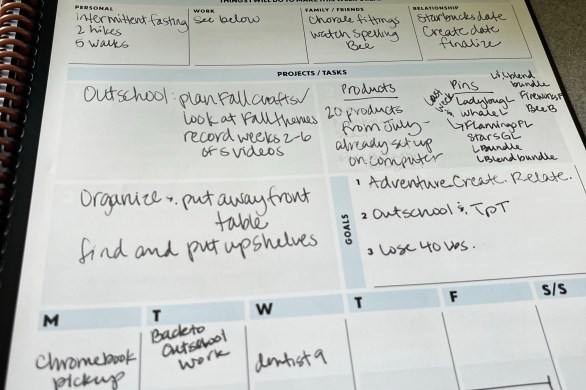 THINGS I WILL DO TO MAKE THIS WEEK GREAT
PERSONAL
intermittent fasting
2 hikes
5 walks
WORK
see below
FAMILY / FRIENDS
chorale fittings
watch Spelling
Bee
RELATIONSHIP
Starbucks date
Create date
finalize
PROJECTS / TASKS
Outschool: plan Fall crafts ✓
look at Fall themes
record weeks 2-6
of S videos
Products
20 products
from July -
already set up
on computer
Pins
last week
Ladybug L
Whale L
Planning PL
Stars GL
L Bundle
L Blend bundle
L blend
bundle
Fireworks F
Bee B
Organize & put away front
table
find and put up shelves
GOALS
1 Adventure. Create. Relate.
2 Outschool & TPT
3 Lose 40 lbs.
M
T
W
T
F
S/S
Chromebook
pickup
Back to
Outschool
work
dentist 9